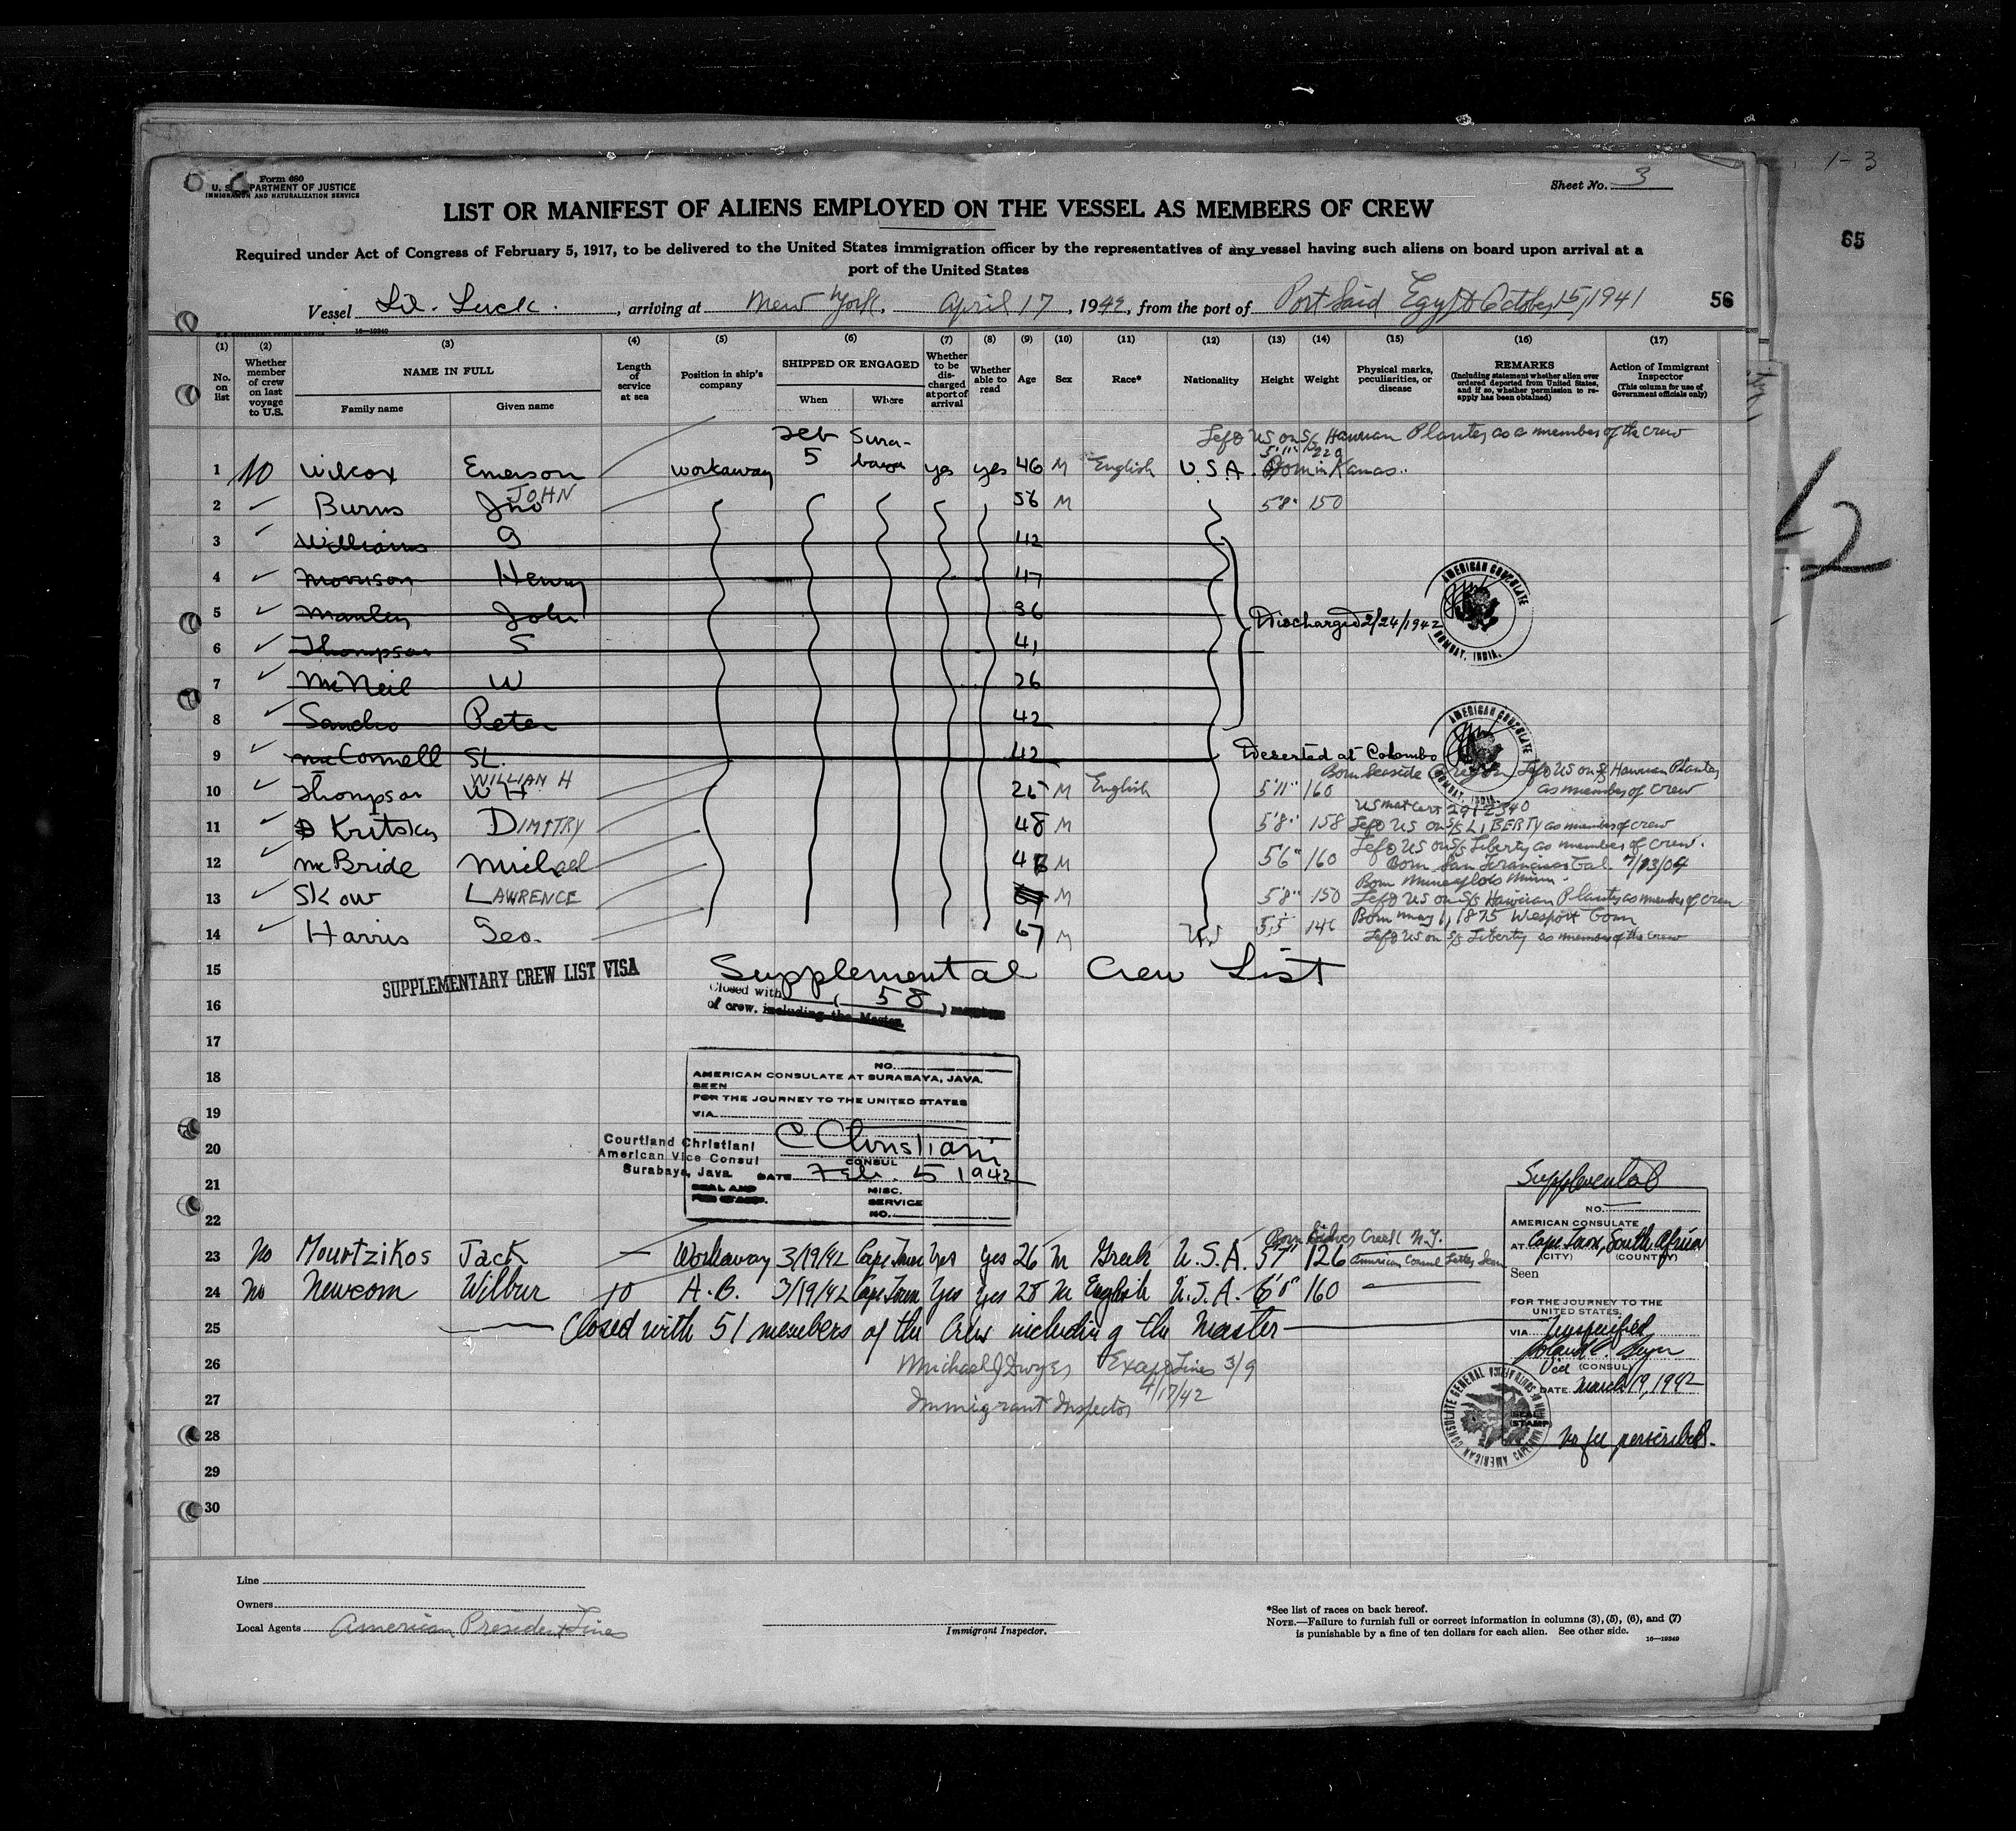 1-3
65
Form 680
U. S. DEPARTMENT OF JUSTICE
IMMIGRATION AND NATURALIZATION SERVICE
Sheet No. 3
LIST OR MANIFEST OF ALIENS EMPLOYED ON THE VESSEL AS MEMBERS OF CREW
Required under Act of Congress of February 5, 1917, to be delivered to the United States immigration officer by the representatives of any vessel having such aliens on board upon arrival at a
port of the United States
Vessel Lil. Luck. , arriving at New York. April 17 , 1942, from the port of Port Said Egypt October 15, 1941 56
16-19349
(1) (2) (3) (4) (5) (6) (7) (8) (9) (10) (11) (12) (13) (14) (15) (16) (17)
No. on list
Whether member of crew on last voyage to U.S.
NAME IN FULL
Family name Given name
Length of service at sea
Position in ship's company
SHIPPED OR ENGAGED
When Where
Whether to be discharged at port of arrival
Whether able to read
Age
Sex
Race*
Nationality
Height
Weight
Physical marks, peculiarities, or disease
REMARKS
(Including statement whether alien ever ordered deported from United States, and if so, whether permission to reapply has been obtained)
Action of Immigrant Inspector
(This column for use of Government officials only)
Left US on S/S Hawaiian Planter as a member of the crew
1 No Wilcox Emerson workaway Feb 5 Surabaya yes yes 46 M English U.S.A. 5'11" 220 Born in Kansas..
2 Burns Jno JOHN 56 M 5'8" 150
3 Williams G 42
4 Morrison Henry 47
5 Manley John 36
6 Thompson S 41
7 McNeil W 26
8 Sancho Peter 42
Discharged 2/24/1942
AMERICAN CONSULATE
BOMBAY, INDIA.
9 McConnell SL. 42 Deserted at Colombo
AMERICAN CONSULATE
BOMBAY, INDIA
Born Seaside Oregon Left US on S/S Hawaiian Planter
10 Thompson WH WILLIAM H 25 M English 5'11" 160 as member of crew
11 Kritsky DIMITRY 48 M 5'8" 158 Left US on S/S LIBERTY as member of crew
Left US on S/S Liberty as member of crew.
12 McBride Michael M 5'6" 160 Born San Francisco Cal. 7/23/04
Born Minneapolis Minn.
13 Skow LAWRENCE M 5'8" 150 Left US on S/S Hawaiian Planter as member of crew
Born May 1, 1875 Wesport Conn
14 Harris Geo. 67 M US 5'5" 146 Left US on S/S Liberty as member of the crew
15 Supplemental Crew List
SUPPLEMENTARY CREW LIST VISA
Closed with ( 58 ) members
16 of crew, including the Master.
17
18
NO.
AMERICAN CONSULATE AT SURABAYA, JAVA.
SEEN
FOR THE JOURNEY TO THE UNITED STATES
19
VIA
C Christiani
CONSUL
20
Courtland Christiani
American Vice Consul
Surabaya, Java.
DATE Feb. 5 1942
21
SEAL AND
MISC.
SERVICE
NO.
22
Born Silver Creek N.Y.
23 No Mourtzikos Jack — Workaway 3/19/42 Cape Town Yes Yes 26 M Greek U.S.A. 5'7" 126
24 No Newcom Wilbur 10 A.B. 3/19/42 Cape Town Yes Yes 28 M English U.S.A. 6'0" 160 —
25 Closed with 51 members of the Crew including the Master
26 Michael J Dwyer 3/9
27 Immigrant Inspector 4/17/42
28
29
30
Supplemental
NO.
AMERICAN CONSULATE
AT Cape Town, South Africa
(CITY) (COUNTRY)
Seen
FOR THE JOURNEY TO THE
UNITED STATES,
VIA Unspecified
Vice (CONSUL)
DATE March 19, 1942
(SEAL)
(STAMP)
AMERICAN CONSULATE GENERAL
No fee prescribed.
Line
Owners
Local Agents American President Lines
Immigrant Inspector.
*See list of races on back hereof.
NOTE.—Failure to furnish full or correct information in columns (3), (5), (6), and (7)
is punishable by a fine of ten dollars for each alien. See other side.
16-19349